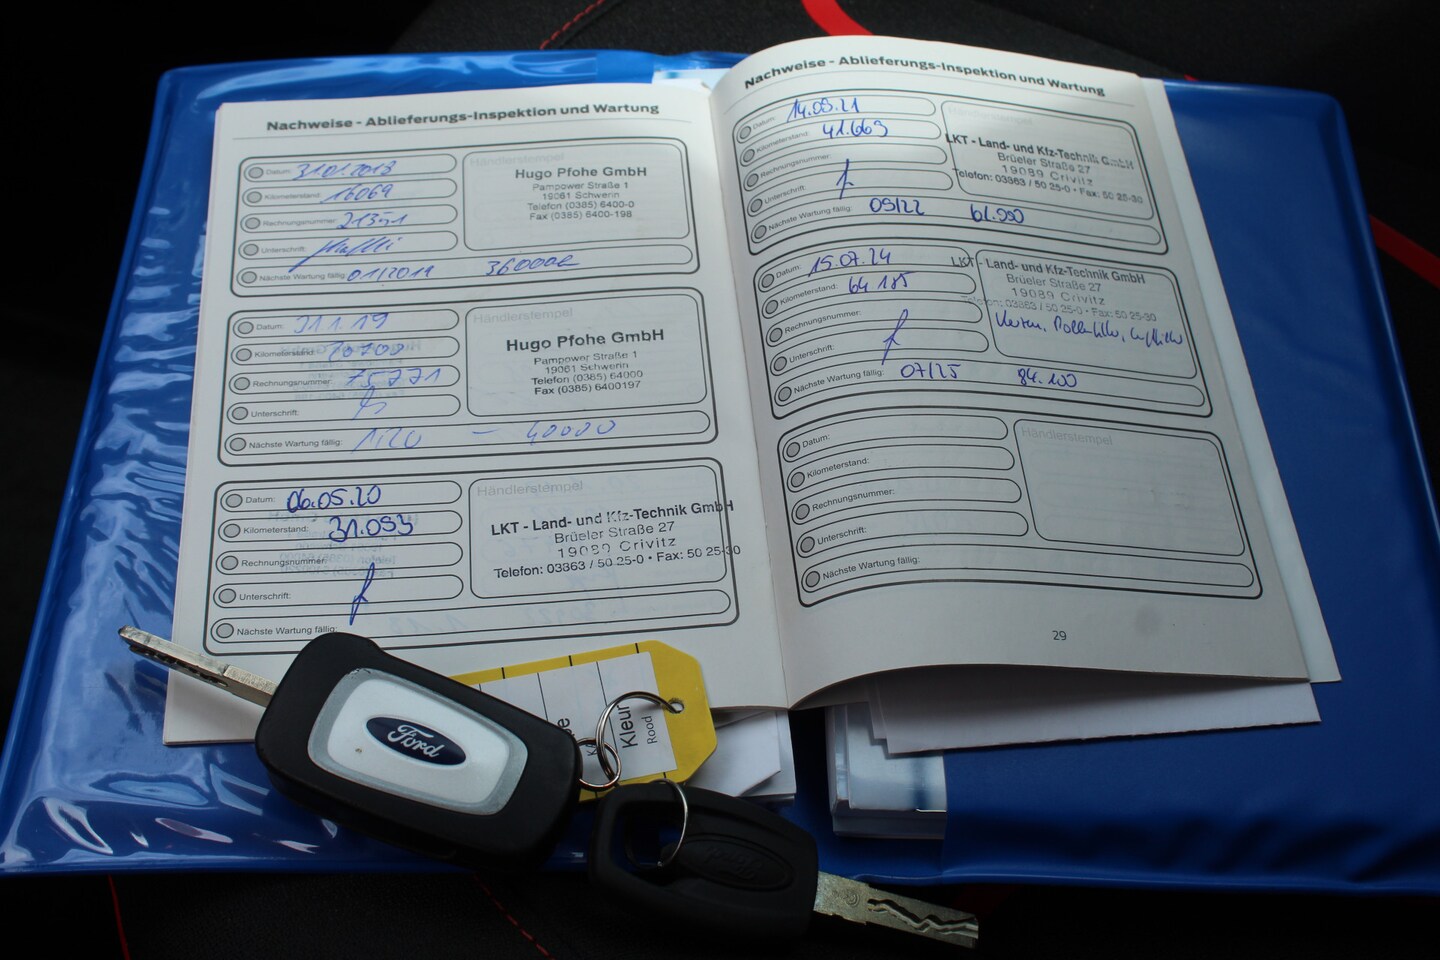 Nachweise - Ablieferungs-Inspektion und Wartung
Datum: 31.01.2018
Kilometerstand: 16069
Rechnungsnummer: 21351
Unterschrift:
Nächste Wartung fällig: 01/2019 36000
Händlerstempel
Hugo Pfohe GmbH
Pampower Straße 1
19061 Schwerin
Telefon (0385) 6400-0
Fax (0385) 6400-198
Datum: 31.1.19
Kilometerstand:
Rechnungsnummer:
Unterschrift:
Nächste Wartung fällig: 1/20 - 40000
Händlerstempel
Hugo Pfohe GmbH
Pampower Straße 1
19061 Schwerin
Telefon (0385) 64000
Fax (0385) 6400197
Datum: 06.05.20
Kilometerstand: 31.093
Rechnungsnummer:
Unterschrift:
Nächste Wartung fällig:
Händlerstempel
LKT - Land- und Kfz-Technik GmbH
Brüeler Straße 27
19089 Crivitz
Telefon: 03863 / 50 25-0 • Fax: 50 25-30
Nachweise - Ablieferungs-Inspektion und Wartung
Datum: 14.09.21
Kilometerstand: 41.669
Rechnungsnummer:
Unterschrift:
Nächste Wartung fällig: 09/22
LKT - Land- und Kfz-Technik GmbH
Brüeler Straße 27
19089 Crivitz
Telefon: 03863 / 50 25-0 • Fax: 50 25-30
Datum: 15.07.24
Kilometerstand: 64 185
Rechnungsnummer:
Unterschrift:
Nächste Wartung fällig: 07/25 84.100
LKT - Land- und Kfz-Technik GmbH
Brüeler Straße 27
19089 Crivitz
Telefon: 03863 / 50 25-0 • Fax: 50 25-30
Datum:
Kilometerstand:
Rechnungsnummer:
Unterschrift:
Nächste Wartung fällig:
Händlerstempel
29
Ford
Kleur
Rood